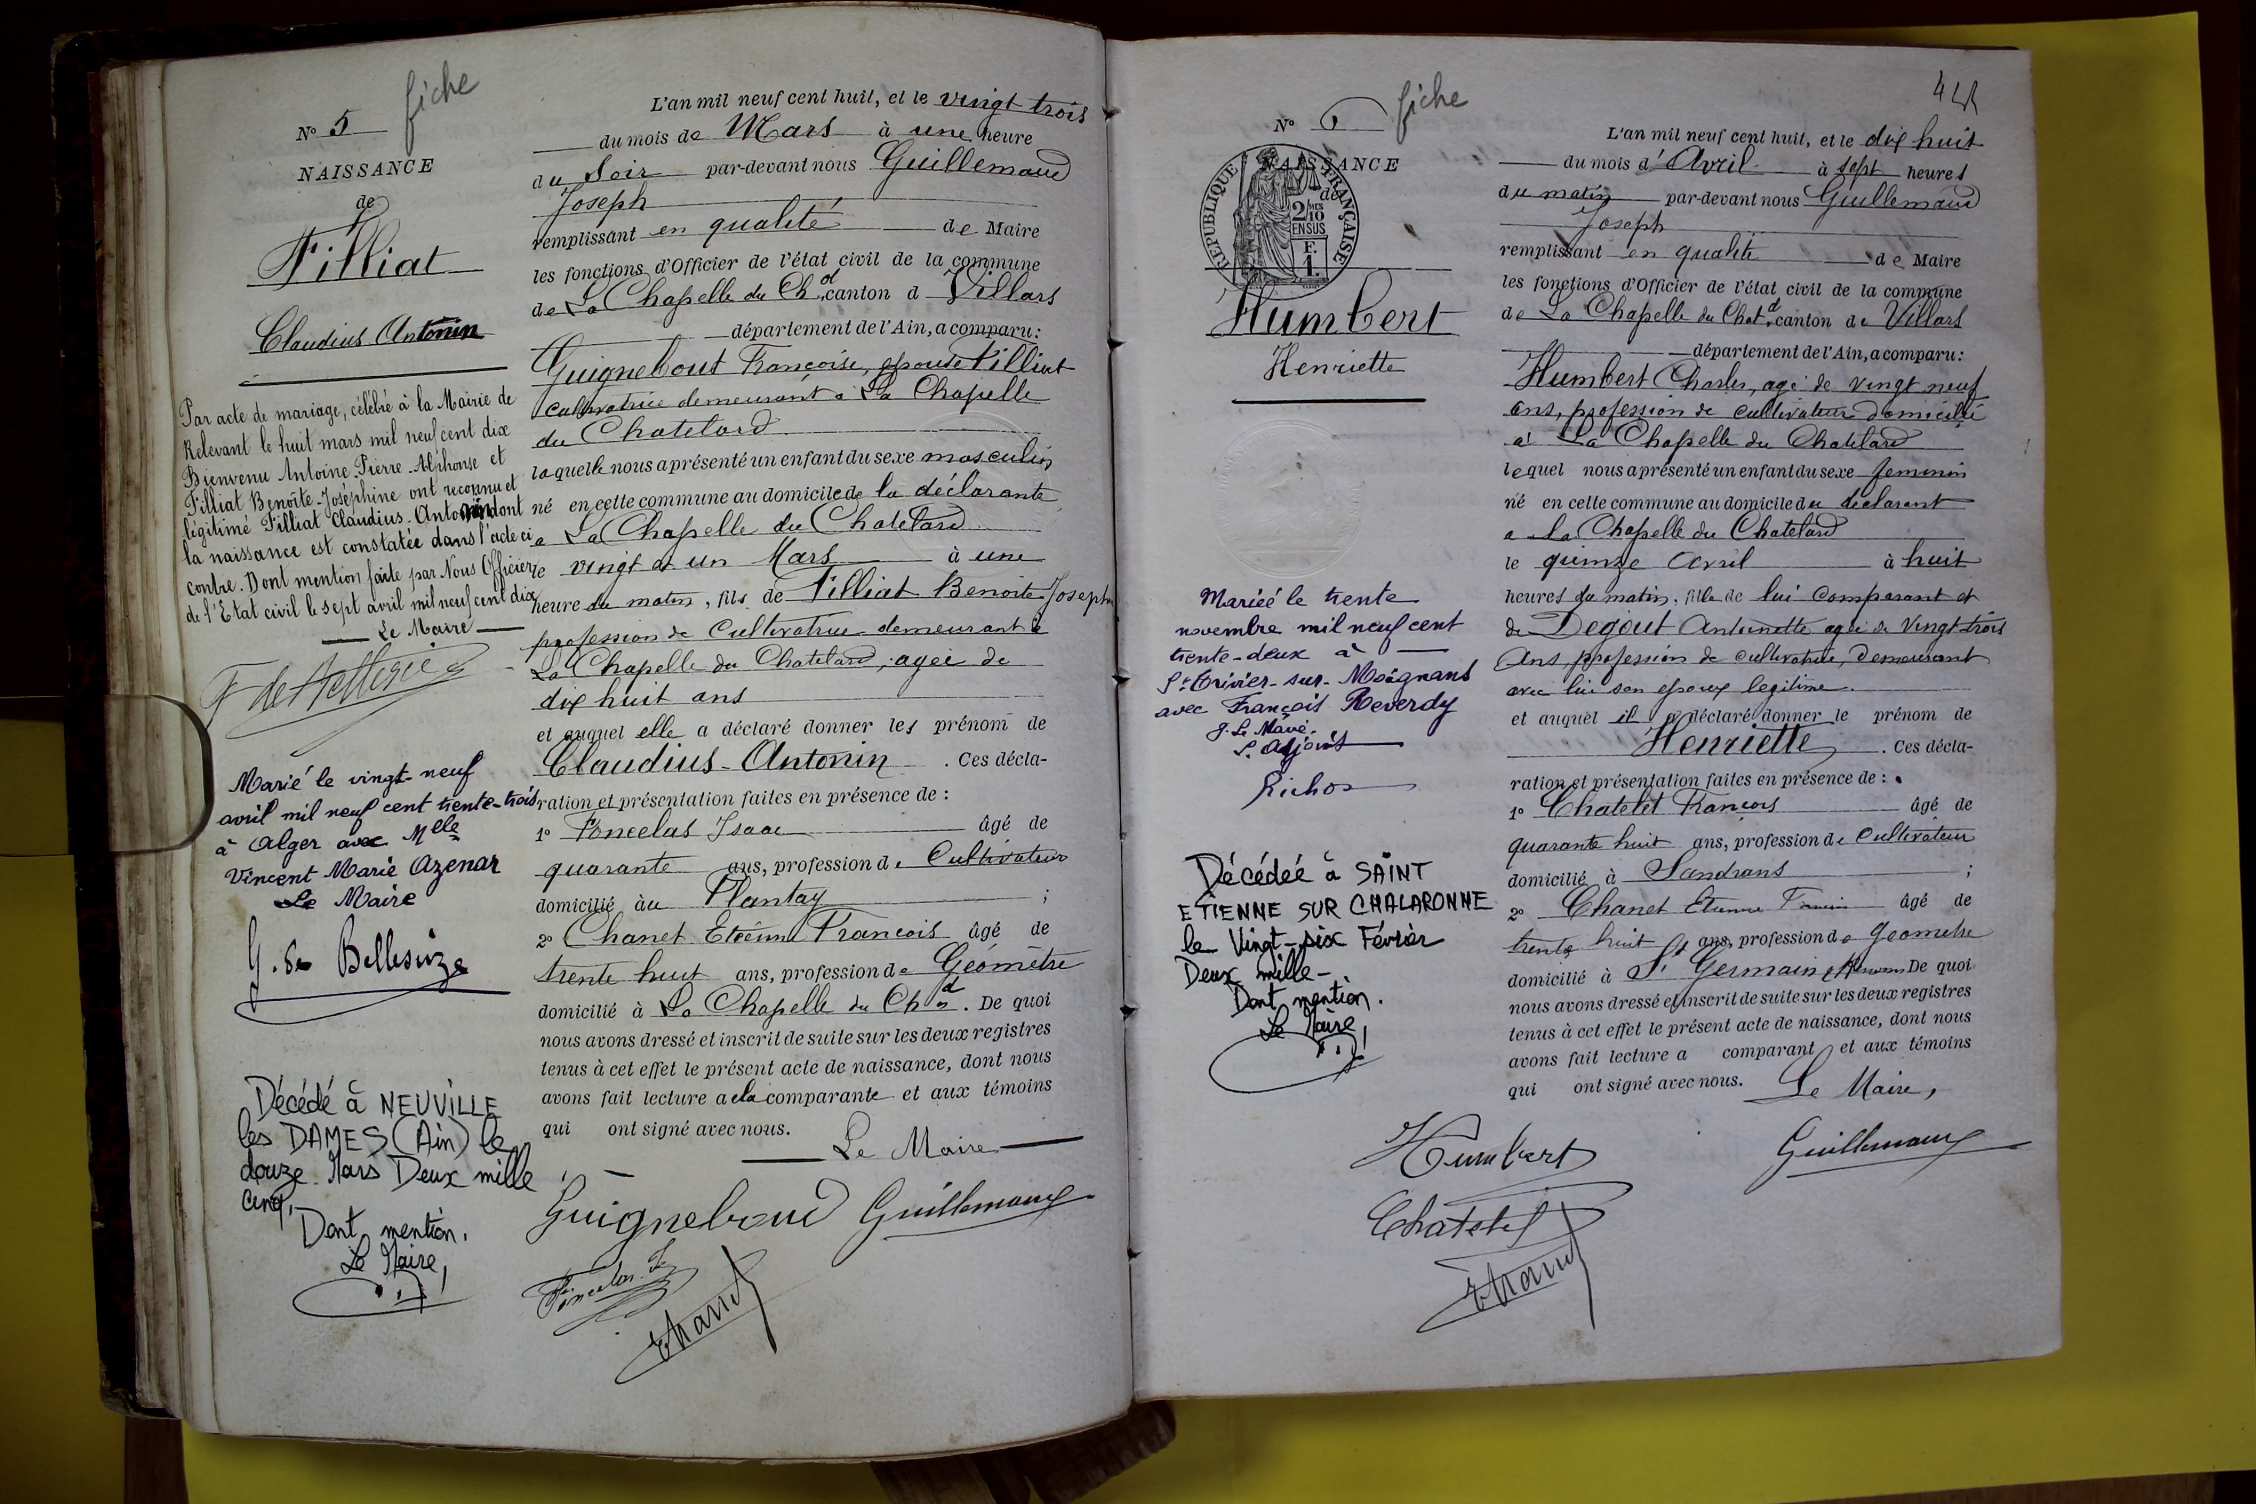 N° 5
fiche
NAISSANCE
de
Filliat
Claudius Antonin
Par acte de mariage, célébré à la Mairie de
Relevant le huit mars mil neuf cent dix
Bienvenu Antoine-Pierre-Alphonse et
Filliat Benoîte-Joséphine ont reconnu et
légitimé Filliat Claudius-Antonin dont
la naissance est constatée dans l'acte ci
contre. Dont mention faite par Nous Officier
de l'Etat civil le sept avril mil neuf cent dix
Le Maire
Marié le vingt-neuf
avril mil neuf cent trente-trois
à Alger avec Mlle
Vincent Marie Azenar
Le Maire
G. de Bellescize
Décédé à NEUVILLE
les DAMES (Ain) le
douze Mars Deux mille
cinq.
Dont mention.
Le Maire,
L'an mil neuf cent huit, et le vingt trois
du mois de Mars à une heure
du Soir par-devant nous Guillemaud
Joseph
remplissant en qualité de Maire
les fonctions d'Officier de l'état civil de la commune
de La Chapelle du Chd, canton d Villars
département de l'Ain, a comparu:
Guignebout Françoise, épouse Filliat
cultivatrice demeurant à La Chapelle
du Chatelard
laquelle nous a présenté un enfant du sexe masculin
né en cette commune au domicile de la déclarante
a La Chapelle du Chatelard
le vingt et un Mars à une
heure du matin, fils de Filliat Benoite Joseph
profession de Cultivatrice demeurant à
La Chapelle du Chatelard, agée de
dix huit ans
et auquel elle a déclaré donner les prénom de
Claudius-Antonin. Ces décla-
ration et présentation faites en présence de :
1° Foncelas Isaac âgé de
quarante ans, profession de Cultivateur
domicilié au Plantay ;
2° Chanet Etienne Francois âgé de
trente huit ans, profession de Géomètre
domicilié à La Chapelle du Chd. De quoi
nous avons dressé et inscrit de suite sur les deux registres
tenus à cet effet le présent acte de naissance, dont nous
avons fait lecture a la comparante et aux témoins
qui ont signé avec nous.
Le Maire
Guigneboud Guillemaud
Chanet
N° 6
fiche
NAISSANCE
de
RÉPUBLIQUE FRANÇAISE
2/10 MES
EN SUS
F.
1.
Humbert
Henriette
Mariée le trente
novembre mil neuf cent
trente-deux à
St Trivier-sur-Moignans
avec François Reverdy
P. Le Maire
L'adjoint
Richon
Décédée à SAINT
ETIENNE SUR CHALARONNE
le Vingt-six Février
Deux mille-
Dont mention.
Le Maire,
L'an mil neuf cent huit, et le dix huit
du mois d'Avril à sept heures
du matin par-devant nous Guillemaud
Joseph
remplissant en qualité de Maire
les fonctions d'Officier de l'état civil de la commune
de La Chapelle du Chatd, canton de Villars
département de l'Ain, a comparu:
Humbert Charles, agé de vingt neuf
ans, profession de cultivateur domicilié
à La Chapelle du Chatelard
lequel nous a présenté un enfant du sexe feminin
né en cette commune au domicile du déclarant
a La Chapelle du Chatelard
le quinze Avril à huit
heures du matin, fille de lui comparant et
de Degout Antoinette agée de Vingt trois
Ans, profession de cultivatrice, demeurant
avec lui son epoux legitime.
et auquel il a déclaré donner le prénom de
Henriette. Ces décla-
ration et présentation faites en présence de :
1° Chatelet Francois âgé de
quarante huit ans, profession de Cultivateur
domicilié à Sandrans ;
2° Chanet Etienne Francois âgé de
trente huit ans, profession de Geometre
domicilié à St Germain s/ Renom De quoi
nous avons dressé et inscrit de suite sur les deux registres
tenus à cet effet le présent acte de naissance, dont nous
avons fait lecture a comparant et aux témoins
qui ont signé avec nous.
Le Maire,
Humbert Guillemaud
Chatelet
Chanet